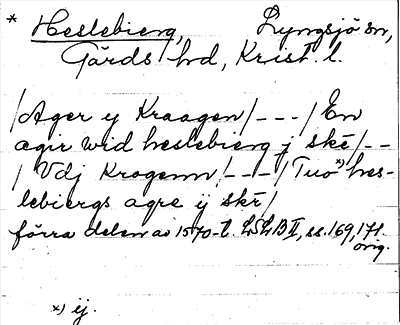 * Heslebierg, Lyngsjö sn,
Gärds hd, Krist. l.
/Ager y Kraagen/ - - - / En
agir wid heslebierg j skē/ - -
/ Vdj Krogenn / - - - / Tuo *) hes-
lebiergs agre ij skē /
förra delen av 1570-t. LLB II, ss. 169, 171.
orig.
*) ij.